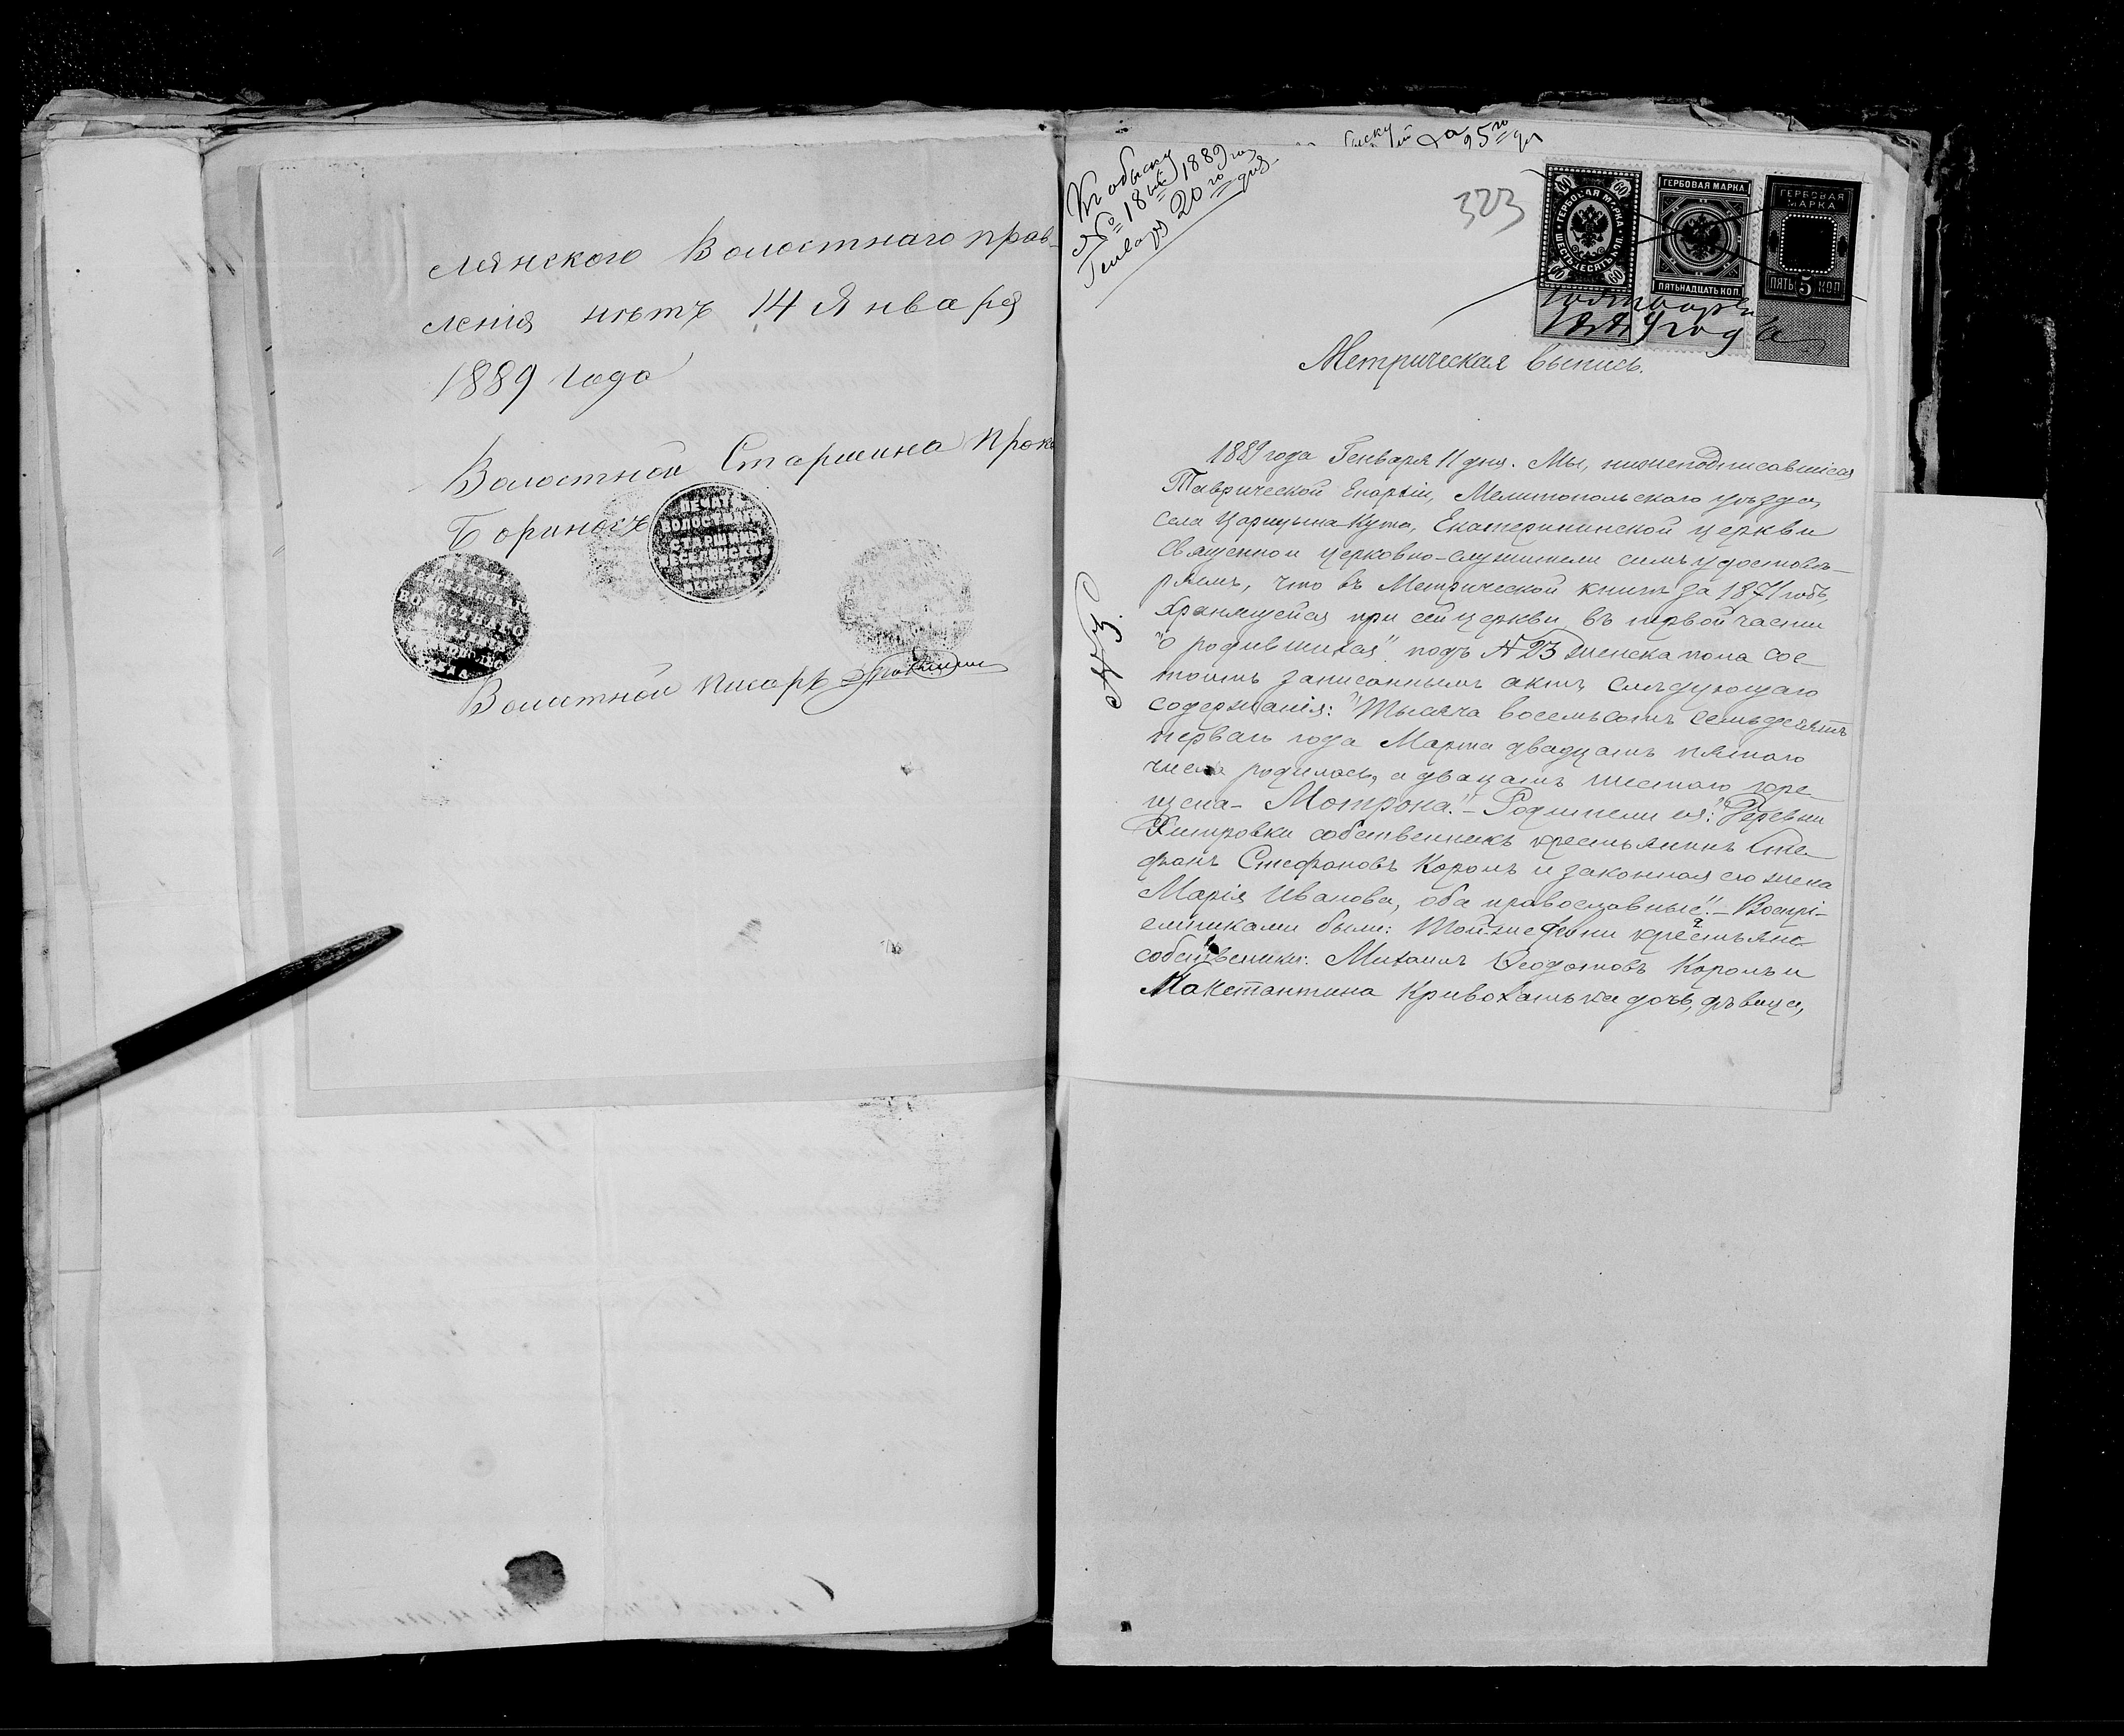 лянского Волостнаго прав-
ленія нѣтъ 14 Января
1889 года
Волостной Старшина Проко
ПЕЧАТЬ
ВОЛОСТНАГО
СТАРШИНЫ
ВЕСЕЛЯНСКОЙ
ВОЛОСТИ
ВОЛОСТНАГО
Волостной писарь
Къ обыску
№ 18ый 1889 го
Генваря 20го дня.
25го
323
ГЕРБОВАЯ МАРКА
ШЕСТЬДЕСЯТЬ К.
60 60 60 60
ГЕРБОВАЯ МАРКА
ПЯТЬНАДЦАТЬ КОП.
ГЕРБОВАЯ
МАРКА
ПЯТЬ 5 КОП
1889 года
Метрическая выпись.
№ 3.
1889 года Генваря 11 дня. Мы, нижеподписавшіеся
Таврической Епархіи, Мелитопольскаго уѣзда,
села Царицына Кута, Екатерининской церкви
Священно и церковно-служители симъ удостовѣ-
ряемъ, что въ Метрической книгѣ за 1871 годъ,
хранящейся при сей церкви, въ первой части
"о родившихся" подъ № 23 женска пола сос-
тоитъ записаннымъ актъ слѣдующаго
содержанія: "Тысяча восемьсотъ семьдесятъ
перваго года Марта двадцать пятаго
числа родилась, а двацать шестаго кре-
щена - Мотрона." - Родители ея: "Деревни
Хитровки собственникъ крестьянинъ Сте-
фанъ Стефановъ Король и законная его жена
Марія Иванова, оба православные." - Воспрі-
емниками были: Той-же крестьяне
собственики: Михаилъ Ѳеодотовъ Король и
Кривохатька дочь, дѣвица,